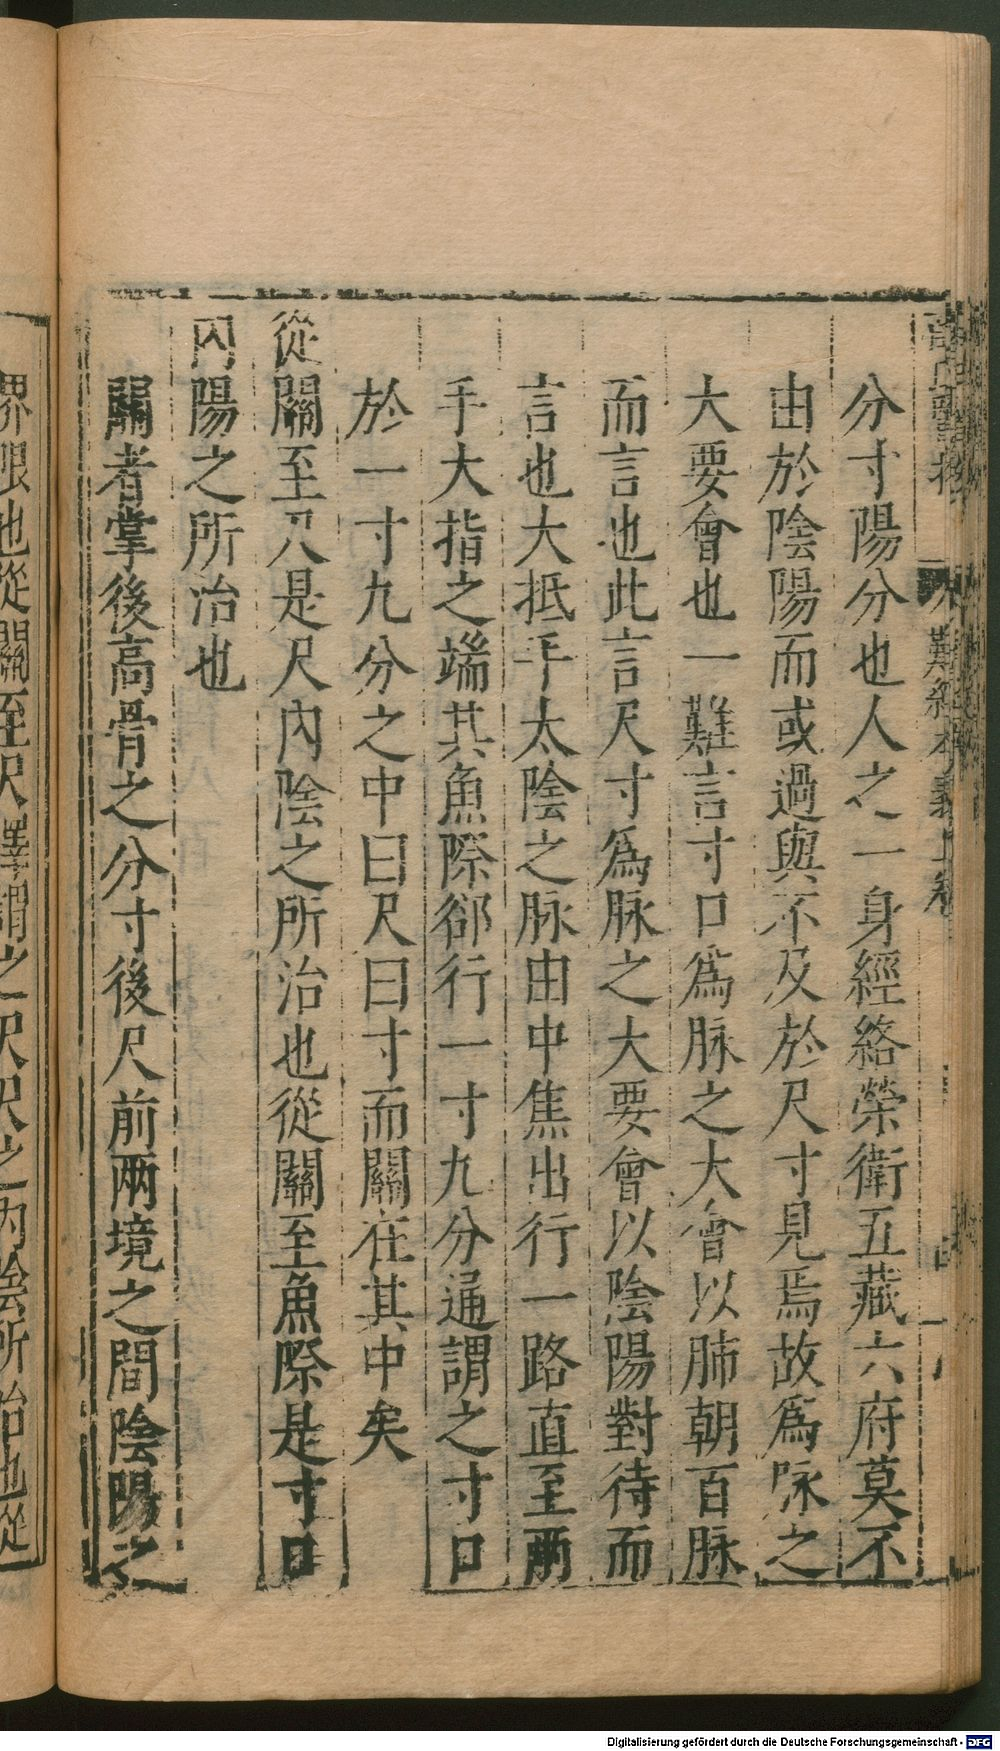 分寸陽分也人之一身經絡榮衛五藏六府莫不
由於陰陽而或過與不及於尺寸見焉故爲脉之
大要會也一難言寸口爲脉之大會以肺朝百脉
而言也此言尺寸爲脉之大要會以陰陽對待而
言也大抵手太陰之脉由中焦出行一路直至兩
手大指之端其魚際郤行一寸九分通謂之寸口
於一寸九分之中曰尺曰寸而關在其中矣
從關至尺是尺內陰之所治也從關至魚際是寸口
內陽之所治也
關者掌後高骨之分寸後尺前兩境之間陰陽之
界限也從關至尺澤謂之尺尺之內陰所治也從
難經本義上卷
Digitalisierung gefördert durch die Deutsche Forschungsgemeinschaft - DFG